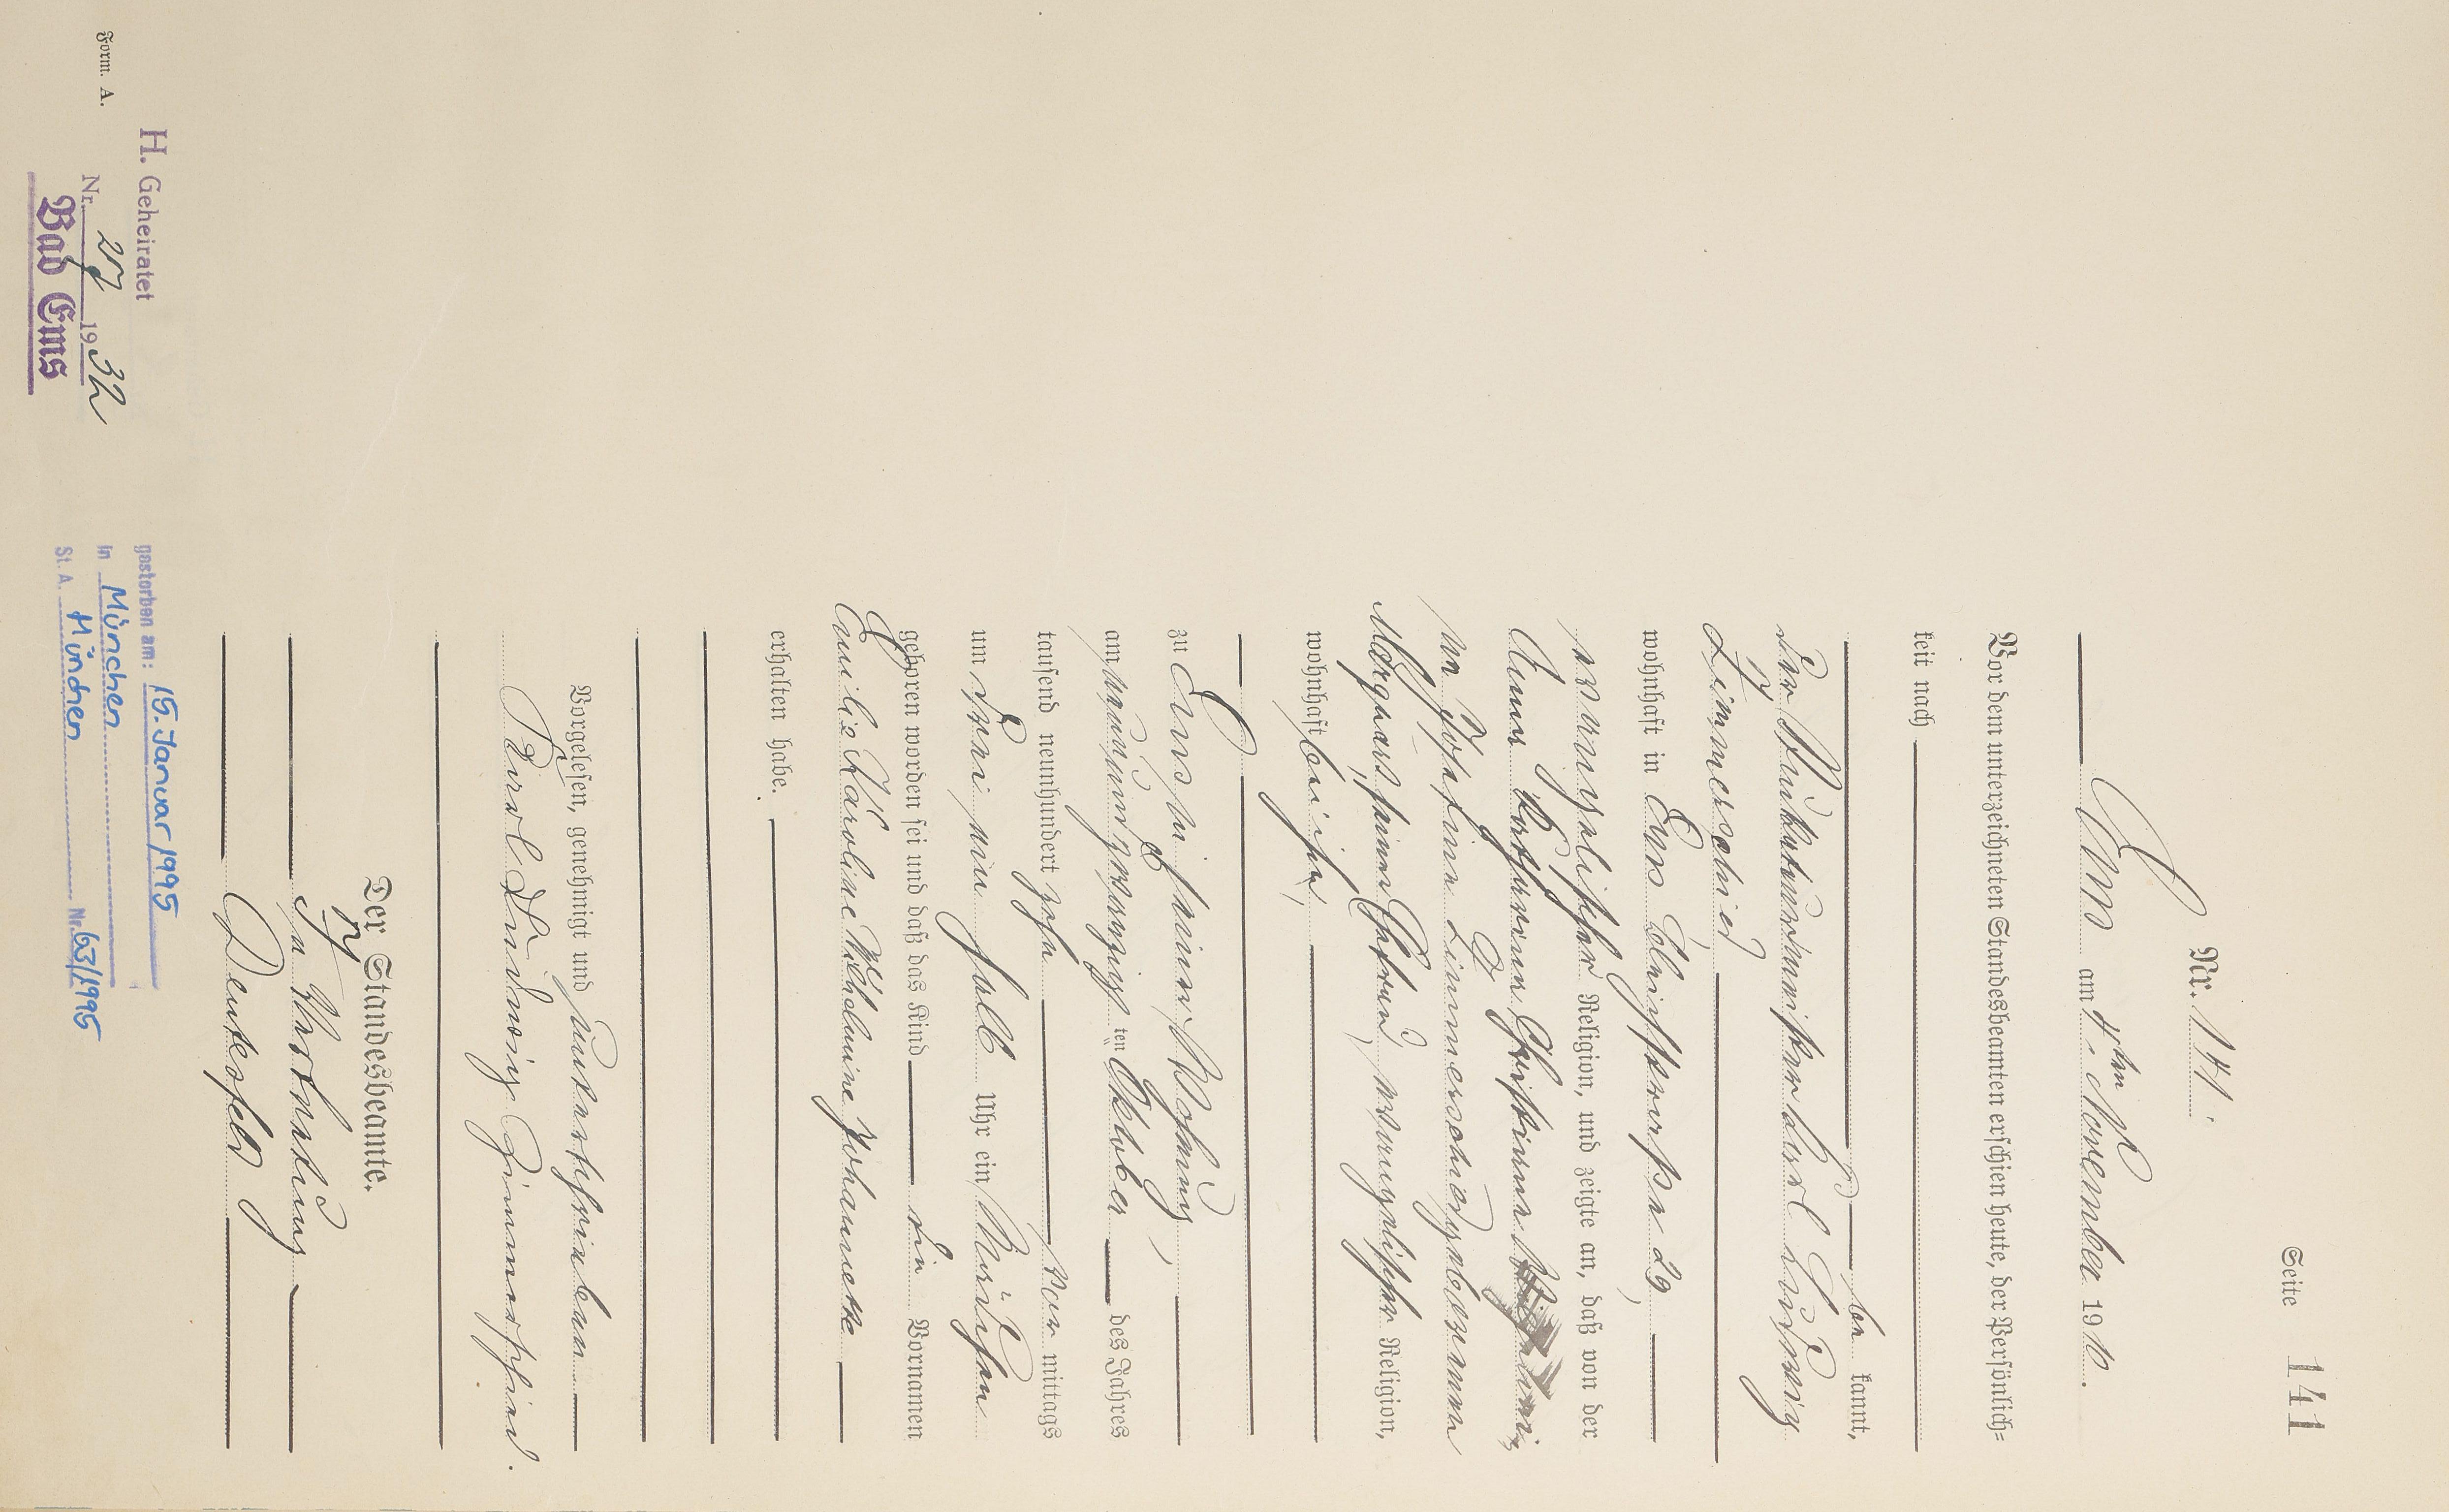 Seite 141
Nr. 141.
Ems am 4ten November 1910.
Vor dem unterzeichneten Standesbeamten erschien heute, der Persönlich=
keit nach
be kannt,
der Stukkateurmeister Karl Ludwig
Zimmerschied
wohnhaft in Ems, Bleichstraße 29,
evangelischer Religion, und zeigte an, daß von der
Anna Katharina Christiane
Josefine Zimmerschied geborenen
seiner Ehefrau, evangelischer Religion,
wohnhaft bei ihm,
zu Ems in seiner Wohnung,
am neunundzwanzigsten Oktober des Jahres
tausend neunhundert zehn Vor mittags
um drei ein halb Uhr ein Mädchen
geboren worden sei und daß das Kind die Vornamen
Emilie Karoline Wilhelmine Johannette
erhalten habe.
Vorgelesen, genehmigt und unterschrieben
Karl Ludwig Zimmerschied.
Der Standesbeamte.
In Vertretung
Form. A.
H. Geheiratet
Nr. 27 1932
Bad Ems
gestorben am: 15. Januar 1995
in München
St. A. München Nr. 63/1995